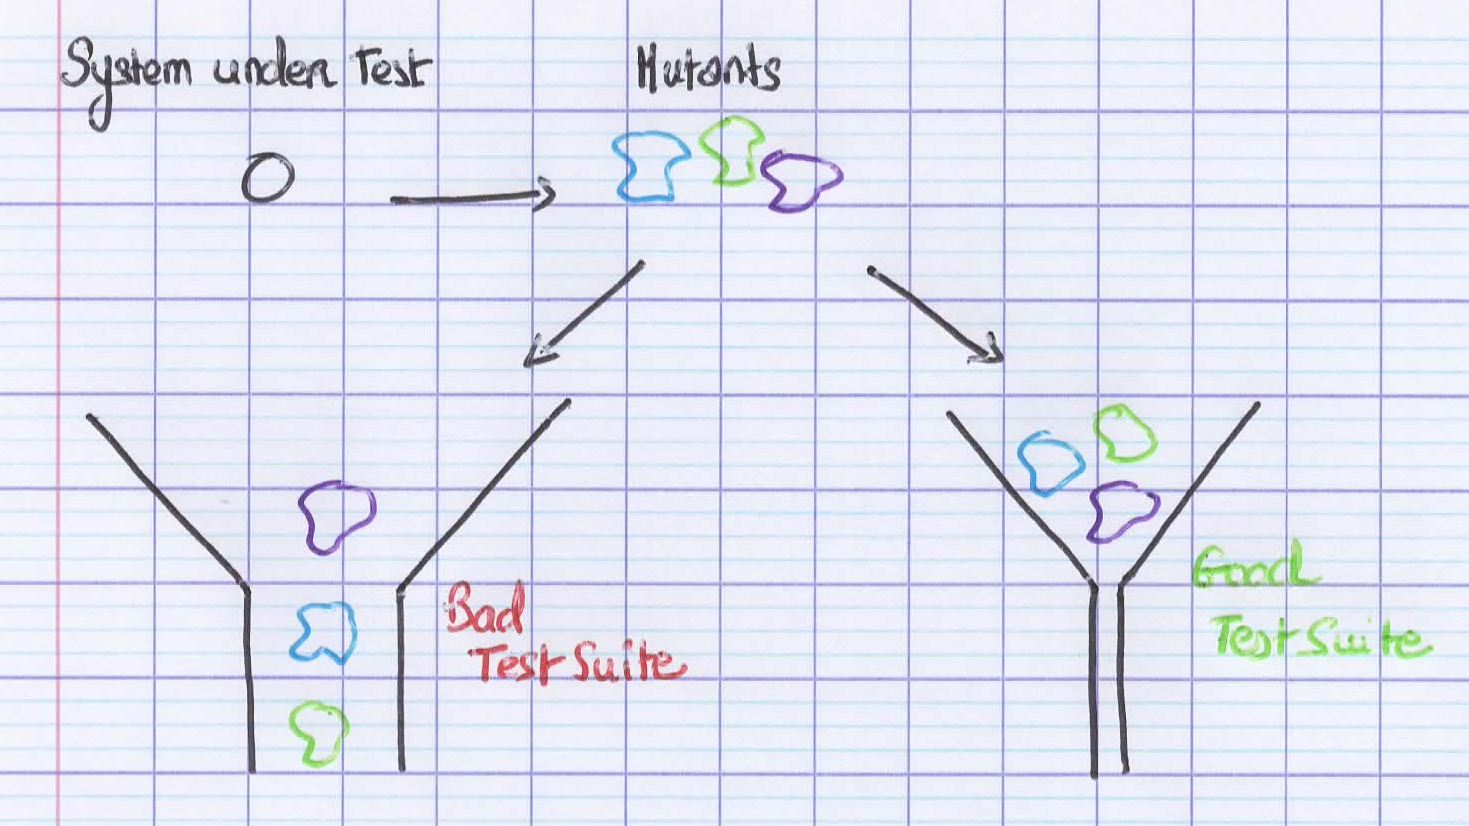 System under Test
Mutants
Bad
Test Suite
Good
Test Suite